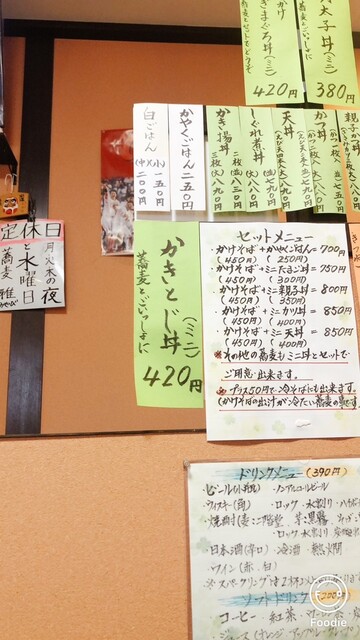 太子丼(ミニ)
380円
かけ
きまぐろ丼(ミニ)
蕎麦とセットでどうぞ
420円
親子丼
かつ丼
天丼
しぐれ煮丼
かき揚丼
三枚(大)
二枚(並)
かやくごはん 二五〇円
白ごはん
(中)(小)
二〇〇円
一五〇円
かきとじ丼(ミニ)
蕎麦とごいっしょに
420円
定休日
月火木の夜
と水曜日
蕎麦
セットメニュー
・かけそば+かやくごはん=700円
(450円) (250円)
・かけそば+ミニたまご丼=750円
(450円) (300円)
・かけそば+ミニ親子丼=800円
(450円) (350円)
・かけそば+ミニカツ丼=850円
(450円) (400円)
・かけそば+ミニ天丼=850円
(450円) (400円)
※その他の蕎麦もミニ丼とセットで
ご用意出来ます。
※プラス50円で冷そばにも出来ます。
(かけそばの出汁が冷たい蕎麦の事です
ドリンクメニュー(390円)
ビール(小瓶) ・ノンアルコールビール
ウイスキー(角) ・ロック・水割り・ハイボ
・焼酎(麦:二階堂、芋:黒霧
ロック 水割り
・日本酒(辛口) ・冷酒 ・熱燗
・ワイン(赤、白)
ソフトドリンク
コーヒー ・紅茶
Foodie